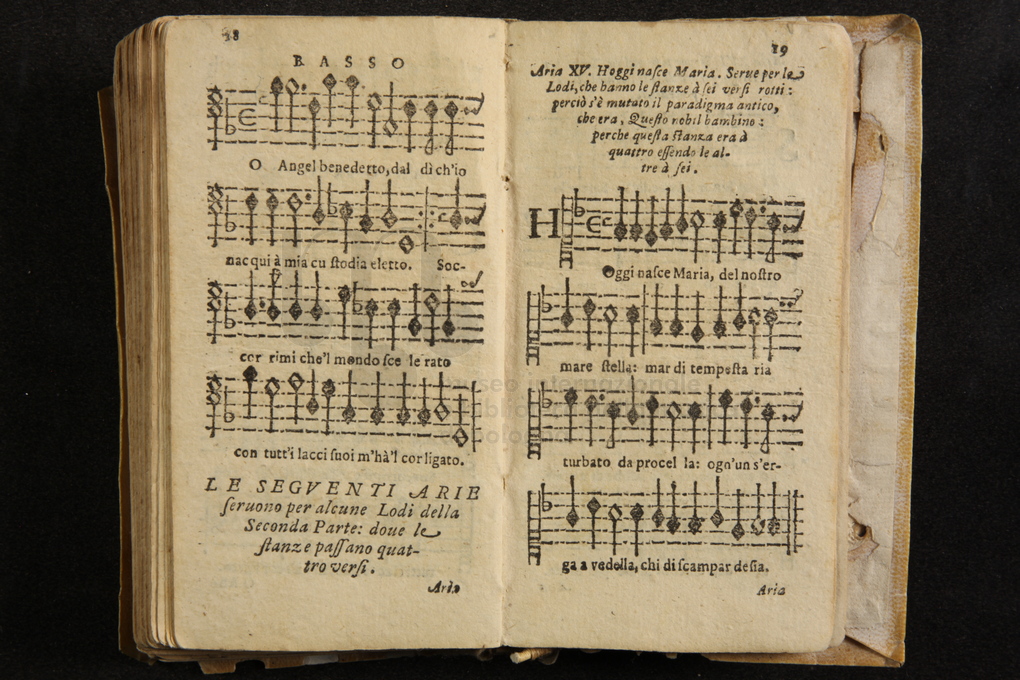 18
BASSO
O Angel benedetto, dal dì ch'io
nacqui à mia cu stodia eletto. Soc-
cor rimi che'l mondo sce le rato
con tutt'i lacci suoi m'hà'l cor ligato.
LE SEGVENTI ARIE
seruono per alcune Lodi della
Seconda Parte: doue le
stanze passano quat-
tro versi.
Aria
19
Aria XV. Hoggi nasce Maria. Serue per le
Lodi, che hanno le stanze à sei versi rotti:
perciò s'è mutato il paradigma antico,
che era, Questo nobil bambino:
perche questa stanza era à
quattro essendo le al-
tre à sei.
H
Oggi nasce Maria, del nostro
mare stella: mar di tempesta ria
turbato da procel la: ogn'un s'er-
ga a vedella, chi di scampar desia.
Aria
museo internazionale